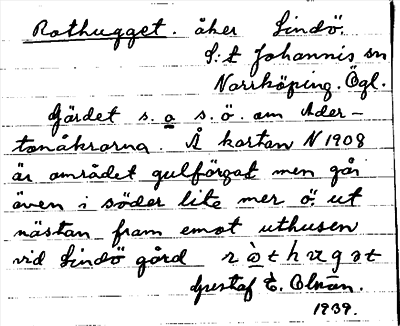 Rothugget. åker Lindö.
S:t Johannis sn
Norrköping. Ögl.
Gärdet s. o s. ö. om Ader-
tonåkrarna. Å kartan N 1908
är området gulfärgat men går
även i söder lite mer ö. ut
nästan fram emot uthusen
vid Lindö gård
Gustaf E.
1939.